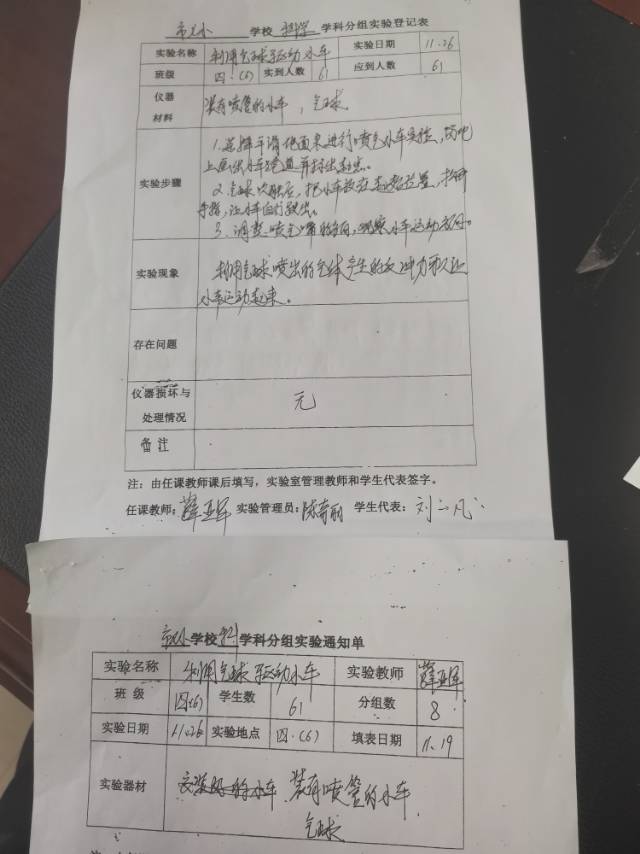 学校 科学 学科分组实验登记表
实验名称 利用气球驱动小车 实验日期 11.26
班级 四·(6) 实到人数 61 应到人数 61
仪器材料 装有喷管的小车，气球。
实验步骤 1.选择平滑地面来进行喷气小车实验，
上画出小车跑道并标出起点。
2.气球吹鼓后，把小车放在起始位置，松开
手指，让小车自行跑出。
3.调整喷气嘴的方向，观察小车运动方向。
实验现象 利用气球喷出的气体产生的反冲力可以让
小车运动起来。
存在问题
仪器损坏与处理情况 无
备注
注：由任课教师课后填写，实验室管理教师和学生代表签字。
任课教师：薛亚军 实验管理员： 学生代表：刘一凡
学校 科 学科分组实验通知单
实验名称 利用气球驱动小车 实验教师 薛亚军
班级 四(6) 学生数 61 分组数 8
实验日期 11.26 实验地点 四·(6) 填表日期 11.19
实验器材 装有喷管的小车
气球